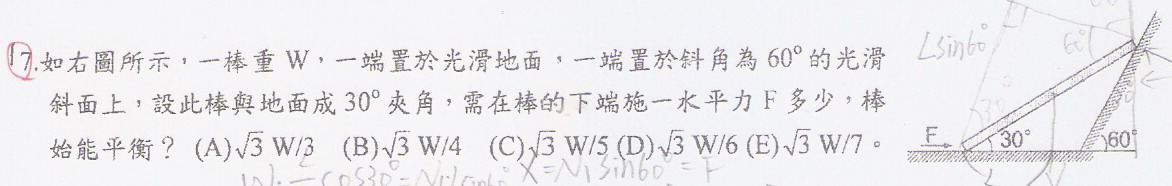 17.如右圖所示,一棒重 W,一端置於光滑地面,一端置於斜角為 60° 的光滑
斜面上,設此棒與地面成 30° 夾角,需在棒的下端施一水平力 F 多少,棒
始能平衡? (A)√3 W/3 (B)√3 W/4 (C)√3 W/5 (D)√3 W/6 (E)√3 W/7。
Lsin60°
60°
F
30°
60°